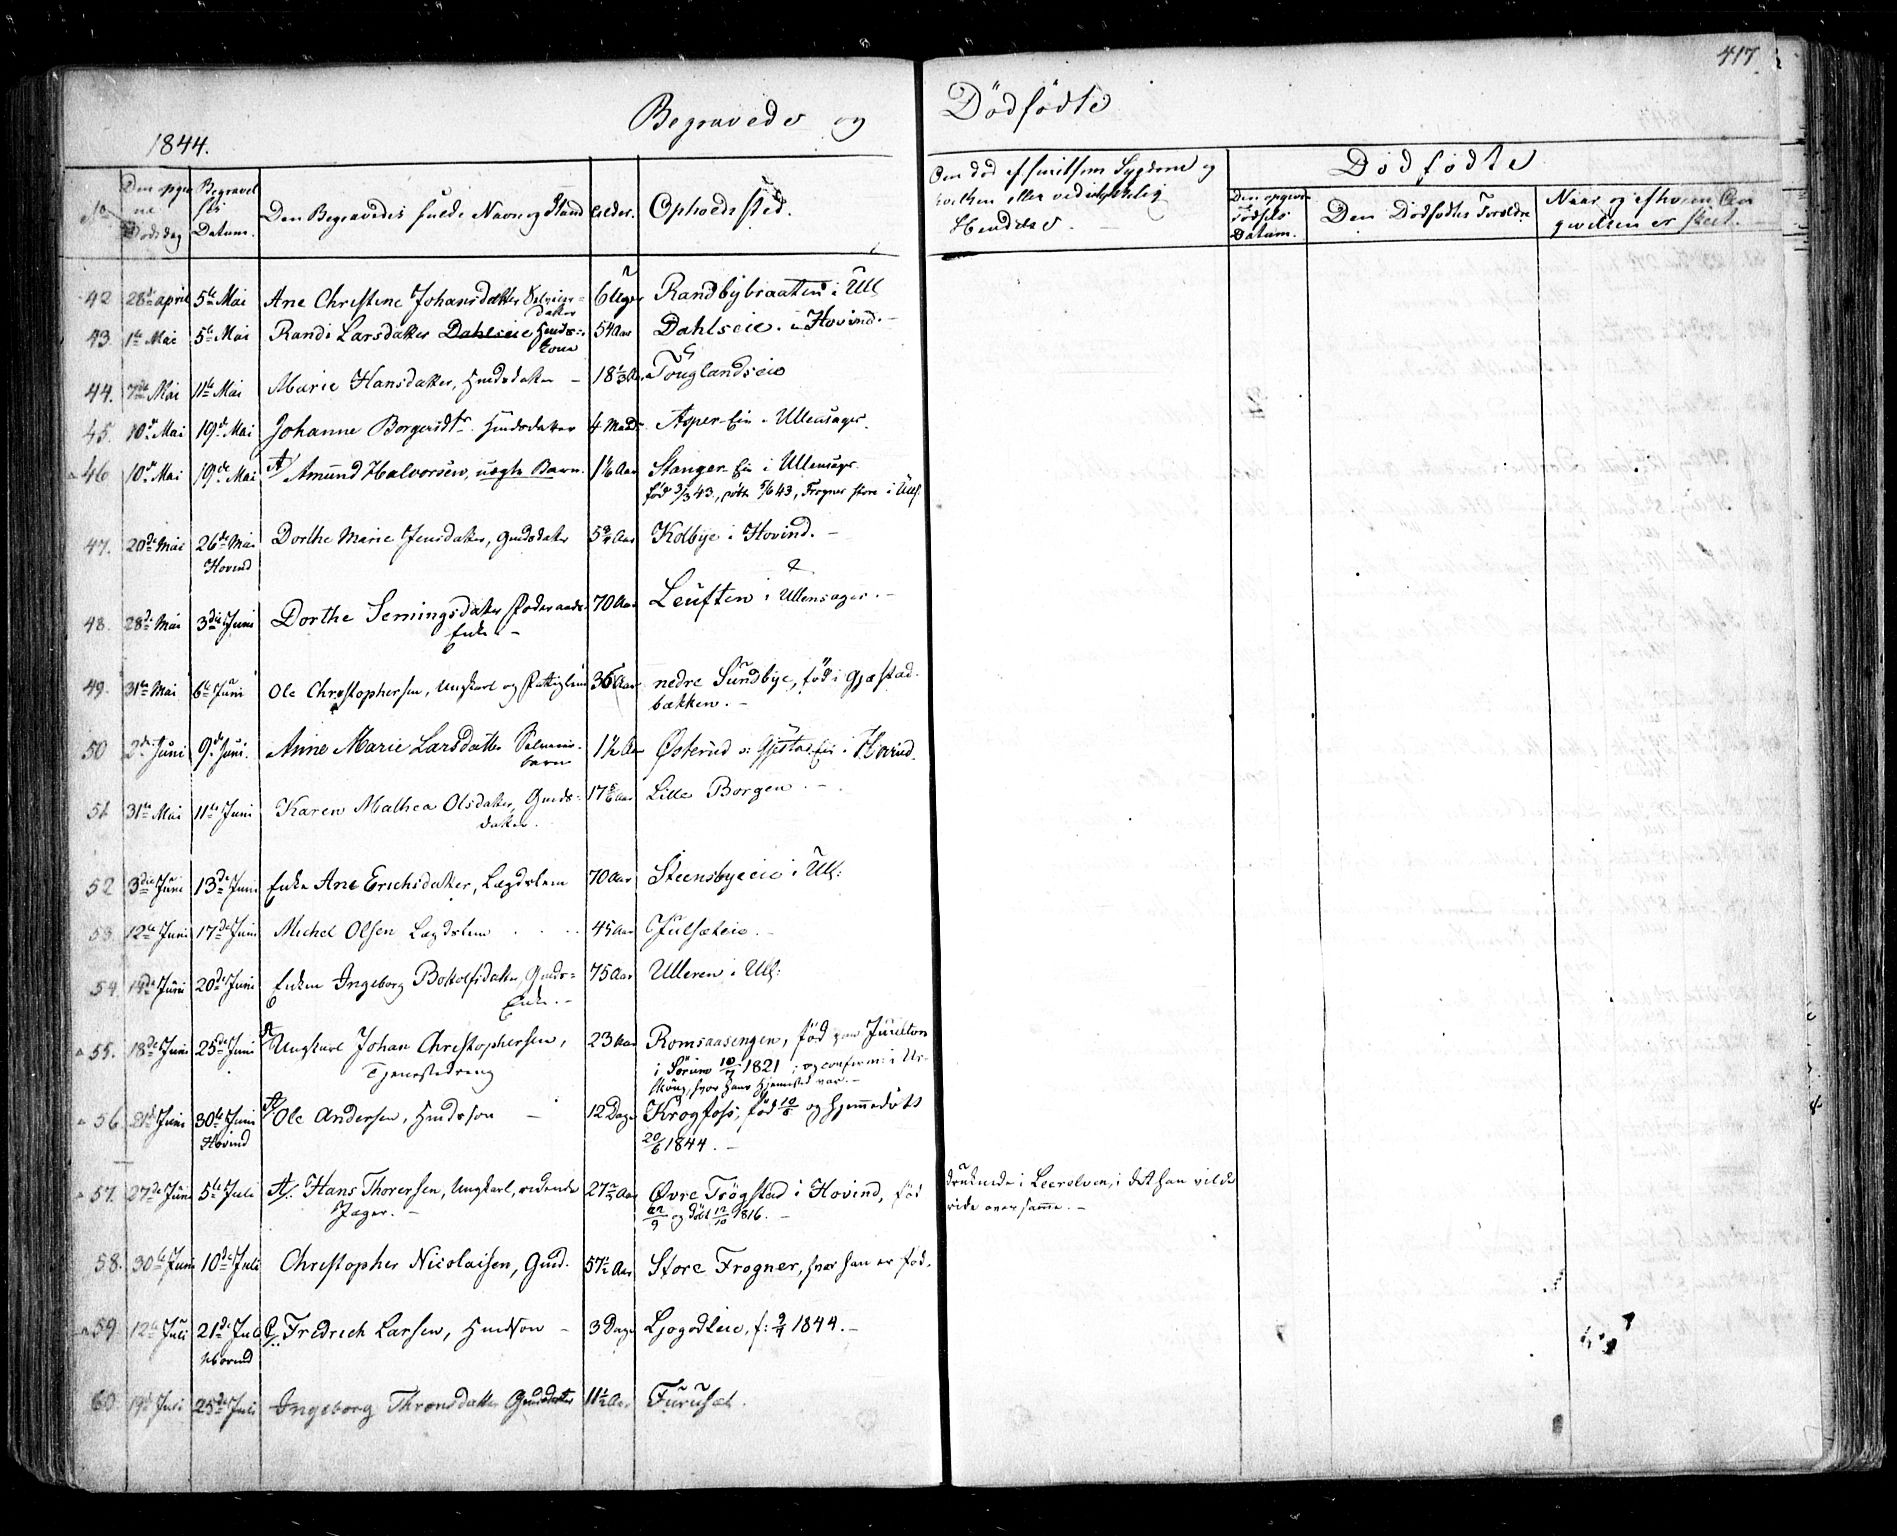 417
Begravede og Dödfödte
1844.
No
Den opgivne Dödsdag
Begravelses Datum.
Den Begravedes fulde Navn og Stand
Alder.
Opholdssted.
Den död af smitsom Sygdom og hvilken eller ved ulykkelig Hændelse.
Dödfödte
Den opgivne Födsels Datum.
Den Dödfödtes Forældre
Naar og afhvem
givelsen er skeet.
42 28de april 5te Mai Ane Christine Johansdatter 6 Uger Randbybraaten i Ull
43. 1te Mai 5te Mai Randi Larsdatter Dahlseie Huusmands Kone 54 Aar Dahlseie i Hovind.
44. 7de Mai 11te Mai Marie Hansdatter, Hmdsdatter 18 1/3 Aar Töuglandseie
45. 10de Mai 19de Mai Johanne Borgersdtr. Hmdsdatter 4 Maad. Asper-Eie i Ullensager.
46 10de Mai 19de Mai A/ Amund Halvorsen, uægte Barn. 1 1/6 Aar Stanger Eie i Ullensager.
föd 3/3 43, döbt 5/6 43, Frogner store i Ull.
47. 20de Mai 26de Mai Dorthe Marie Jensdatter, Gmdsdatter 5 3/4 Aar Kolbye i Hovind.
Hovind
48. 28de Mai 3die Juni Dorthe Semingsdatter Föderaads 70 Aar Leuften i Ullensager.
Enke
49. 31te Mai 6te Juni Ole Christophersen, Ungkarl og Fattiglem 36 Aar nedre Sundbye, föd i Gjæstad-
bakken.
50 2den Juni 9de Juni. Anne Marie Larsdatter 1 1/2 Aar Østerud i Hovind.
barn
51 31te Mai 11te Juni Karen Mathea Olsdatter, Gmds- 17 5/6 Aar Lille Borgen
datter.
52 3die Juni 13de Juni Enke Ane Erichsdatter, Lægdslem 70 Aar Steensbyeeie i Ull:
53. 12te Juni 17de Juni Michel Olsen Lægdslem 45 Aar Julsæteie.
54. 14de Juni 20de Juni Enken Ingeborg Botolfsdatter, Gmds- 75 Aar Ulleren i Ull:
Enke.
55. 18de Juni 25de Juni A/ Ungkarl Johan Christophersen, 23 Aar Romsaasengen, föd paa
Tjenestedreng
i Sörum 10/7 1821; og confirm: i Ur-
skoug, hvor hans Hjemsted var.
56. 21de Juni 30te Juni A/ Ole Andersen, Hmdsson 12 Dage Krogfoss, föd 10/6 og hjemmedöbt
Hovind
20/6 1844.
57. 27de Juni 5te Juli A/. Hans Thorersen, Ungkarl, ridende 27 Aar Øvre Trögstad i Hovind, föd
Jæger.
22/9 og döbt 12/10 1816.
druknede i Leerelven, i det han vilde
ride over samme.
58. 30te Juni 10de Juli Christopher Nicolaisen, Gmd. 57 1/2 Aar Store Frogner, hvor han er föd.
59. 12te Juli 21de Juli Fredrich Larsen, Hmdsson 3 Dage Ljogodteie, f: 9/7 1844.
Hovind
60 19de Juli 25de Juli Ingeborg Thronsdatter Gmdsdatter 11 1/2 Aar Furuset.